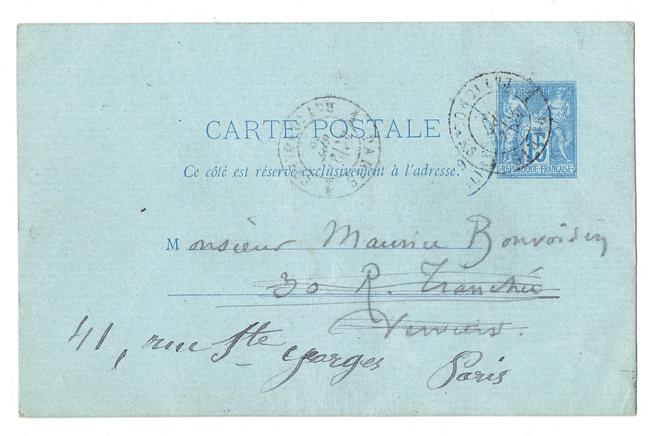 CARTE POSTALE
Ce côté est réservé exclusivement à l'adresse.
15
RÉPUBLIQUE FRANÇAISE
PARIS
Monsieur Maurice Bonvoisin
30 R. Tranchée
Verviers.
41, rue Ste Georges Paris